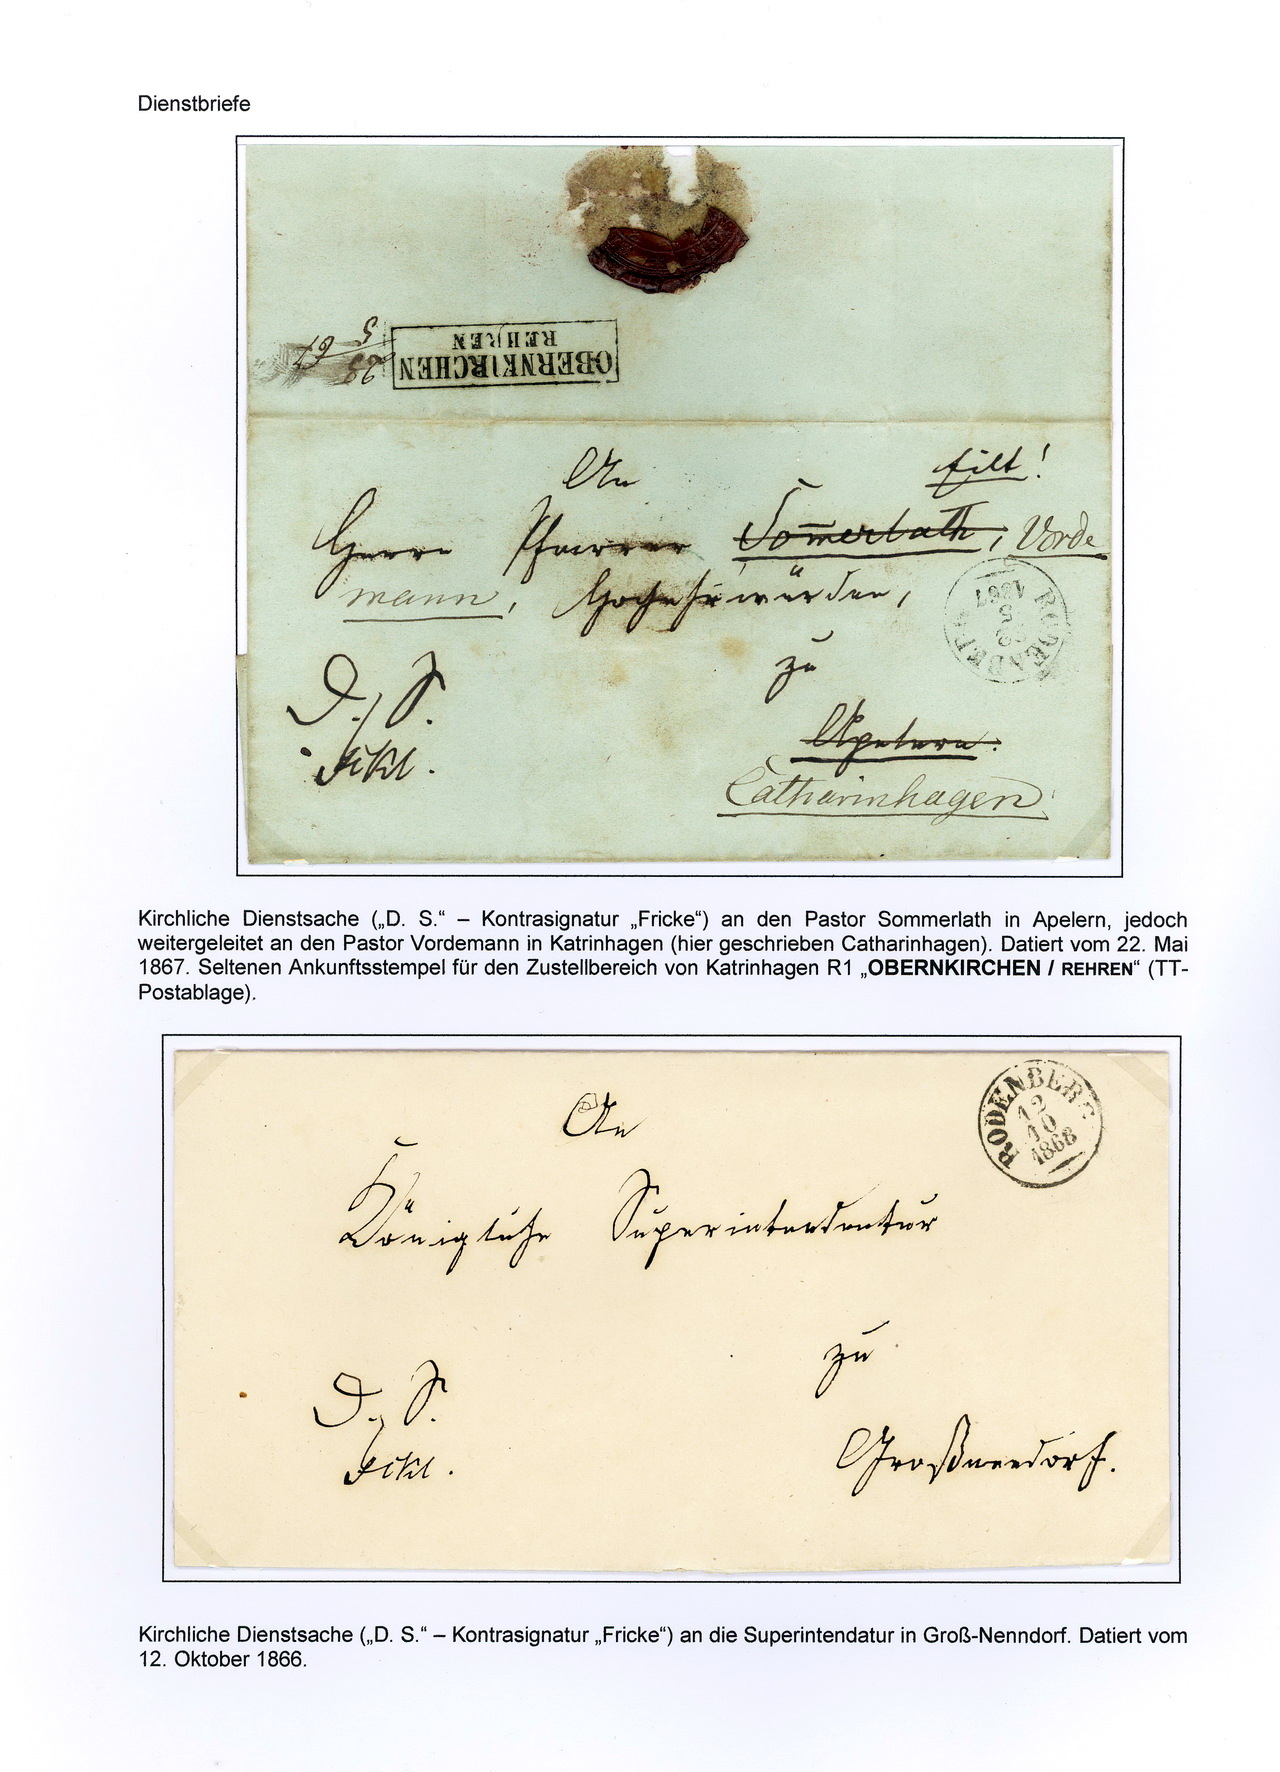 Dienstbriefe
OBERNKIRCHEN
REHREN
23/5 67
An
Eilt!
Herrn Pfarrer Sommerlath, Vorde
mann, Hochehrwürden,
RODENBERG
22
5
1867
zu
D. S.
Apelern.
Catharinhagen
Kirchliche Dienstsache („D. S.“ – Kontrasignatur „Fricke“) an den Pastor Sommerlath in Apelern, jedoch
weitergeleitet an den Pastor Vordemann in Katrinhagen (hier geschrieben Catharinhagen). Datiert vom 22. Mai
1867. Seltenen Ankunftsstempel für den Zustellbereich von Katrinhagen R1 „OBERNKIRCHEN / REHREN“ (TT-
Postablage).
RODENBERG
12
10
1868
An
Königliche Superintendentur
zu
D. S.
Großnendorf.
Kirchliche Dienstsache („D. S.“ – Kontrasignatur „Fricke“) an die Superintendatur in Groß-Nenndorf. Datiert vom
12. Oktober 1866.